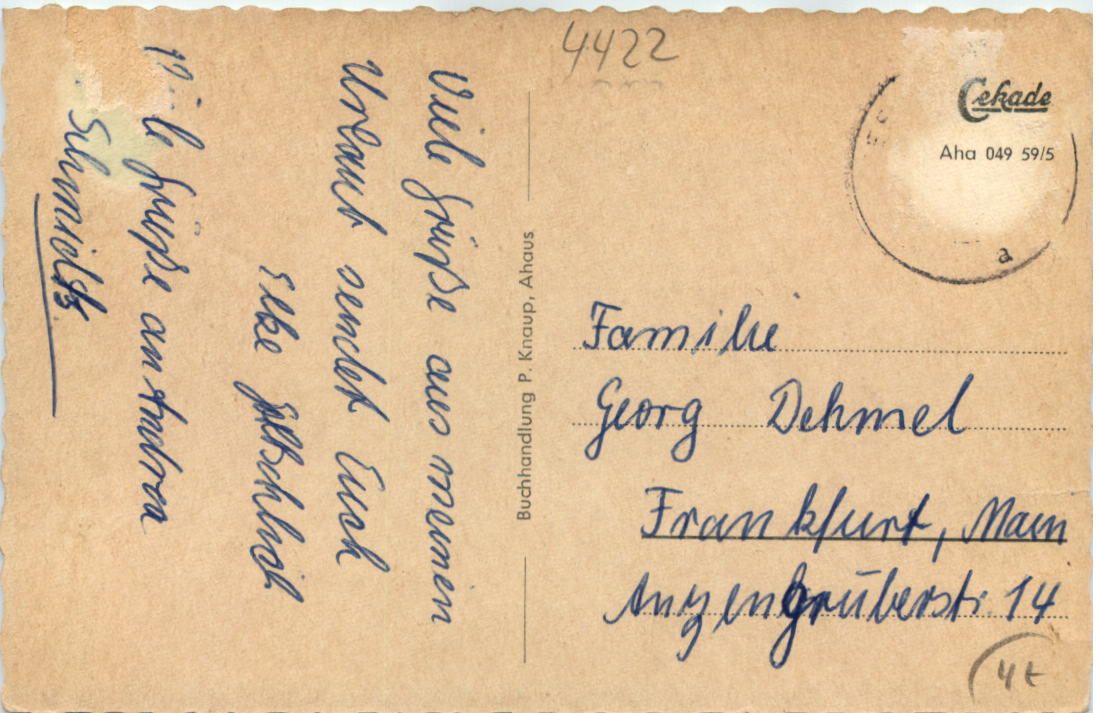 4422
Viele Grüße aus meinen
Urlaub sendet Euch
Elke
Viele Grüße an Andrea
Schmidts.
Buchhandlung P. Knaup, Ahaus
Cekade
Aha 049 59/5
a
Familie
Georg Dehmel
Frankfurt, Main
Anzengruberstr. 14
4t